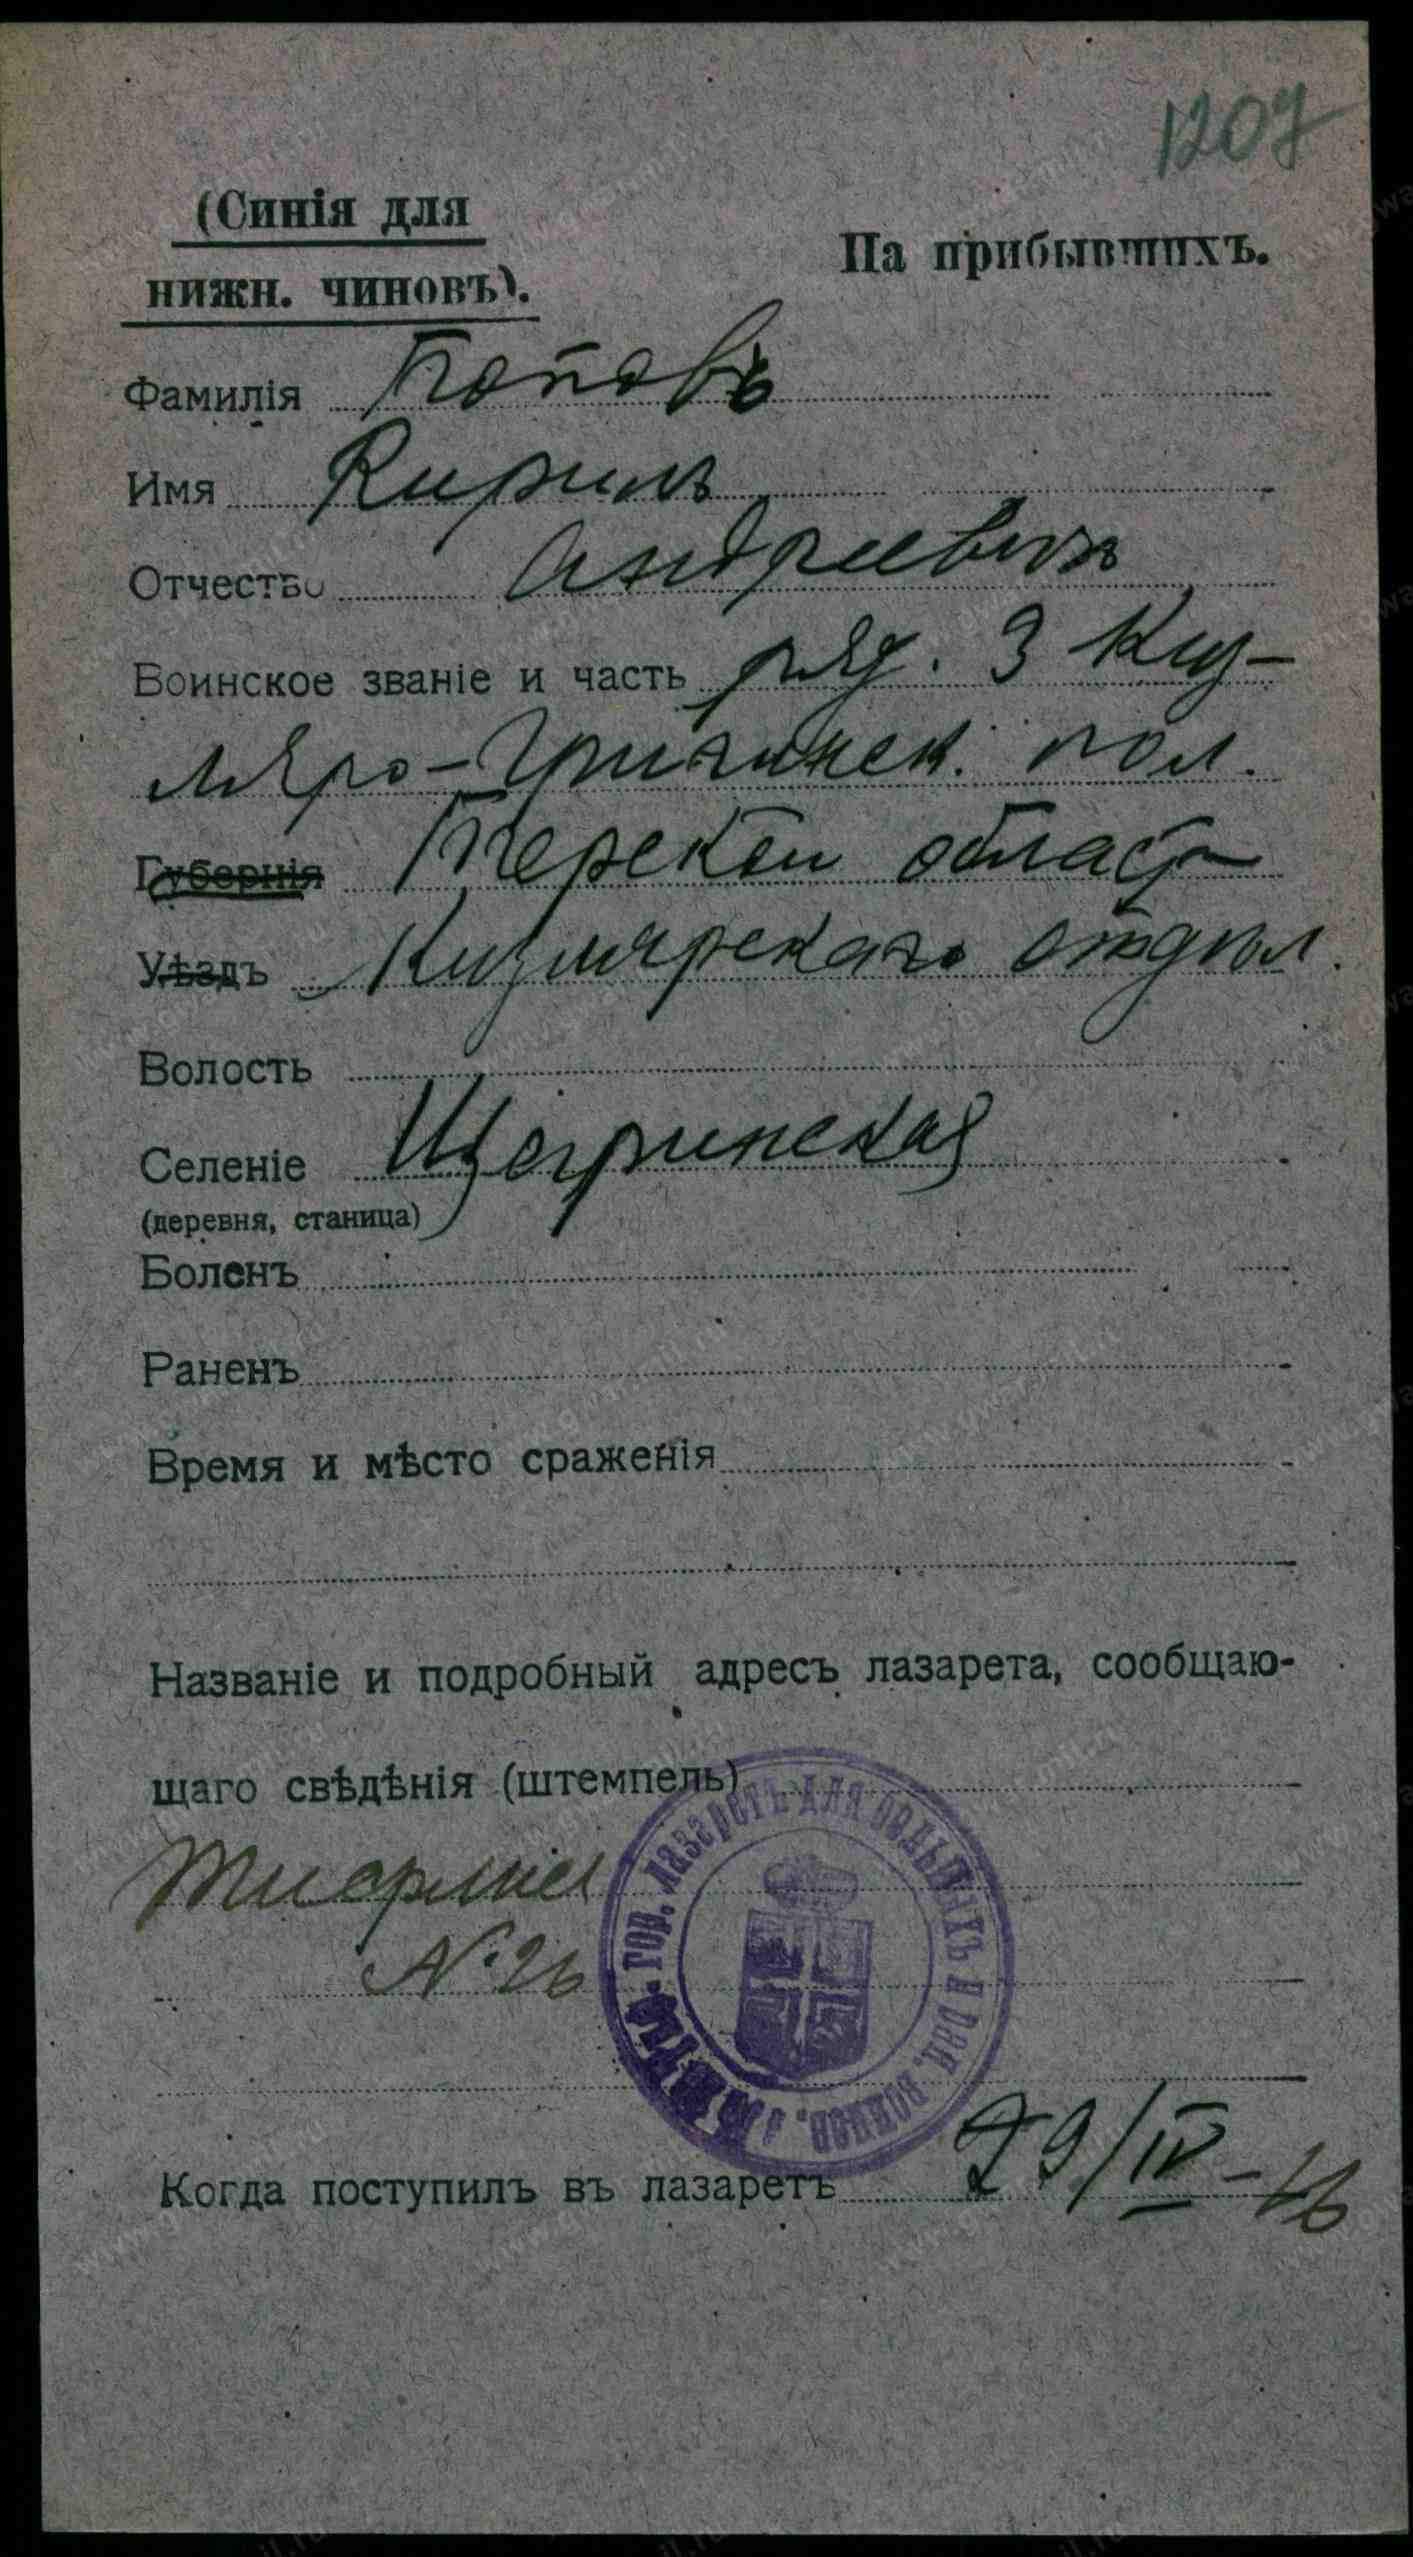 1207
(Синія для
нижн. чиновъ).
На прибывшихъ.
Фамилія Поповъ
Имя Кирилъ
Отчество Андреевичъ
Воинское званіе и часть ряд. 3 Киз-
ляро-Гребенск. пол.
Губернія Терской област
Уѣздъ Кизлярскаго отдѣл.
Волость
Селеніе Щедринская
(деревня, станица)
Боленъ
Раненъ
Время и мѣсто сраженія
Названіе и подробный адресъ лазарета, сообщаю-
щаго свѣдѣнія (штемпель)
гор. лазаретъ для больныхъ и ран. воинов.
№ 26
Когда поступилъ въ лазаретъ 29/IV-16